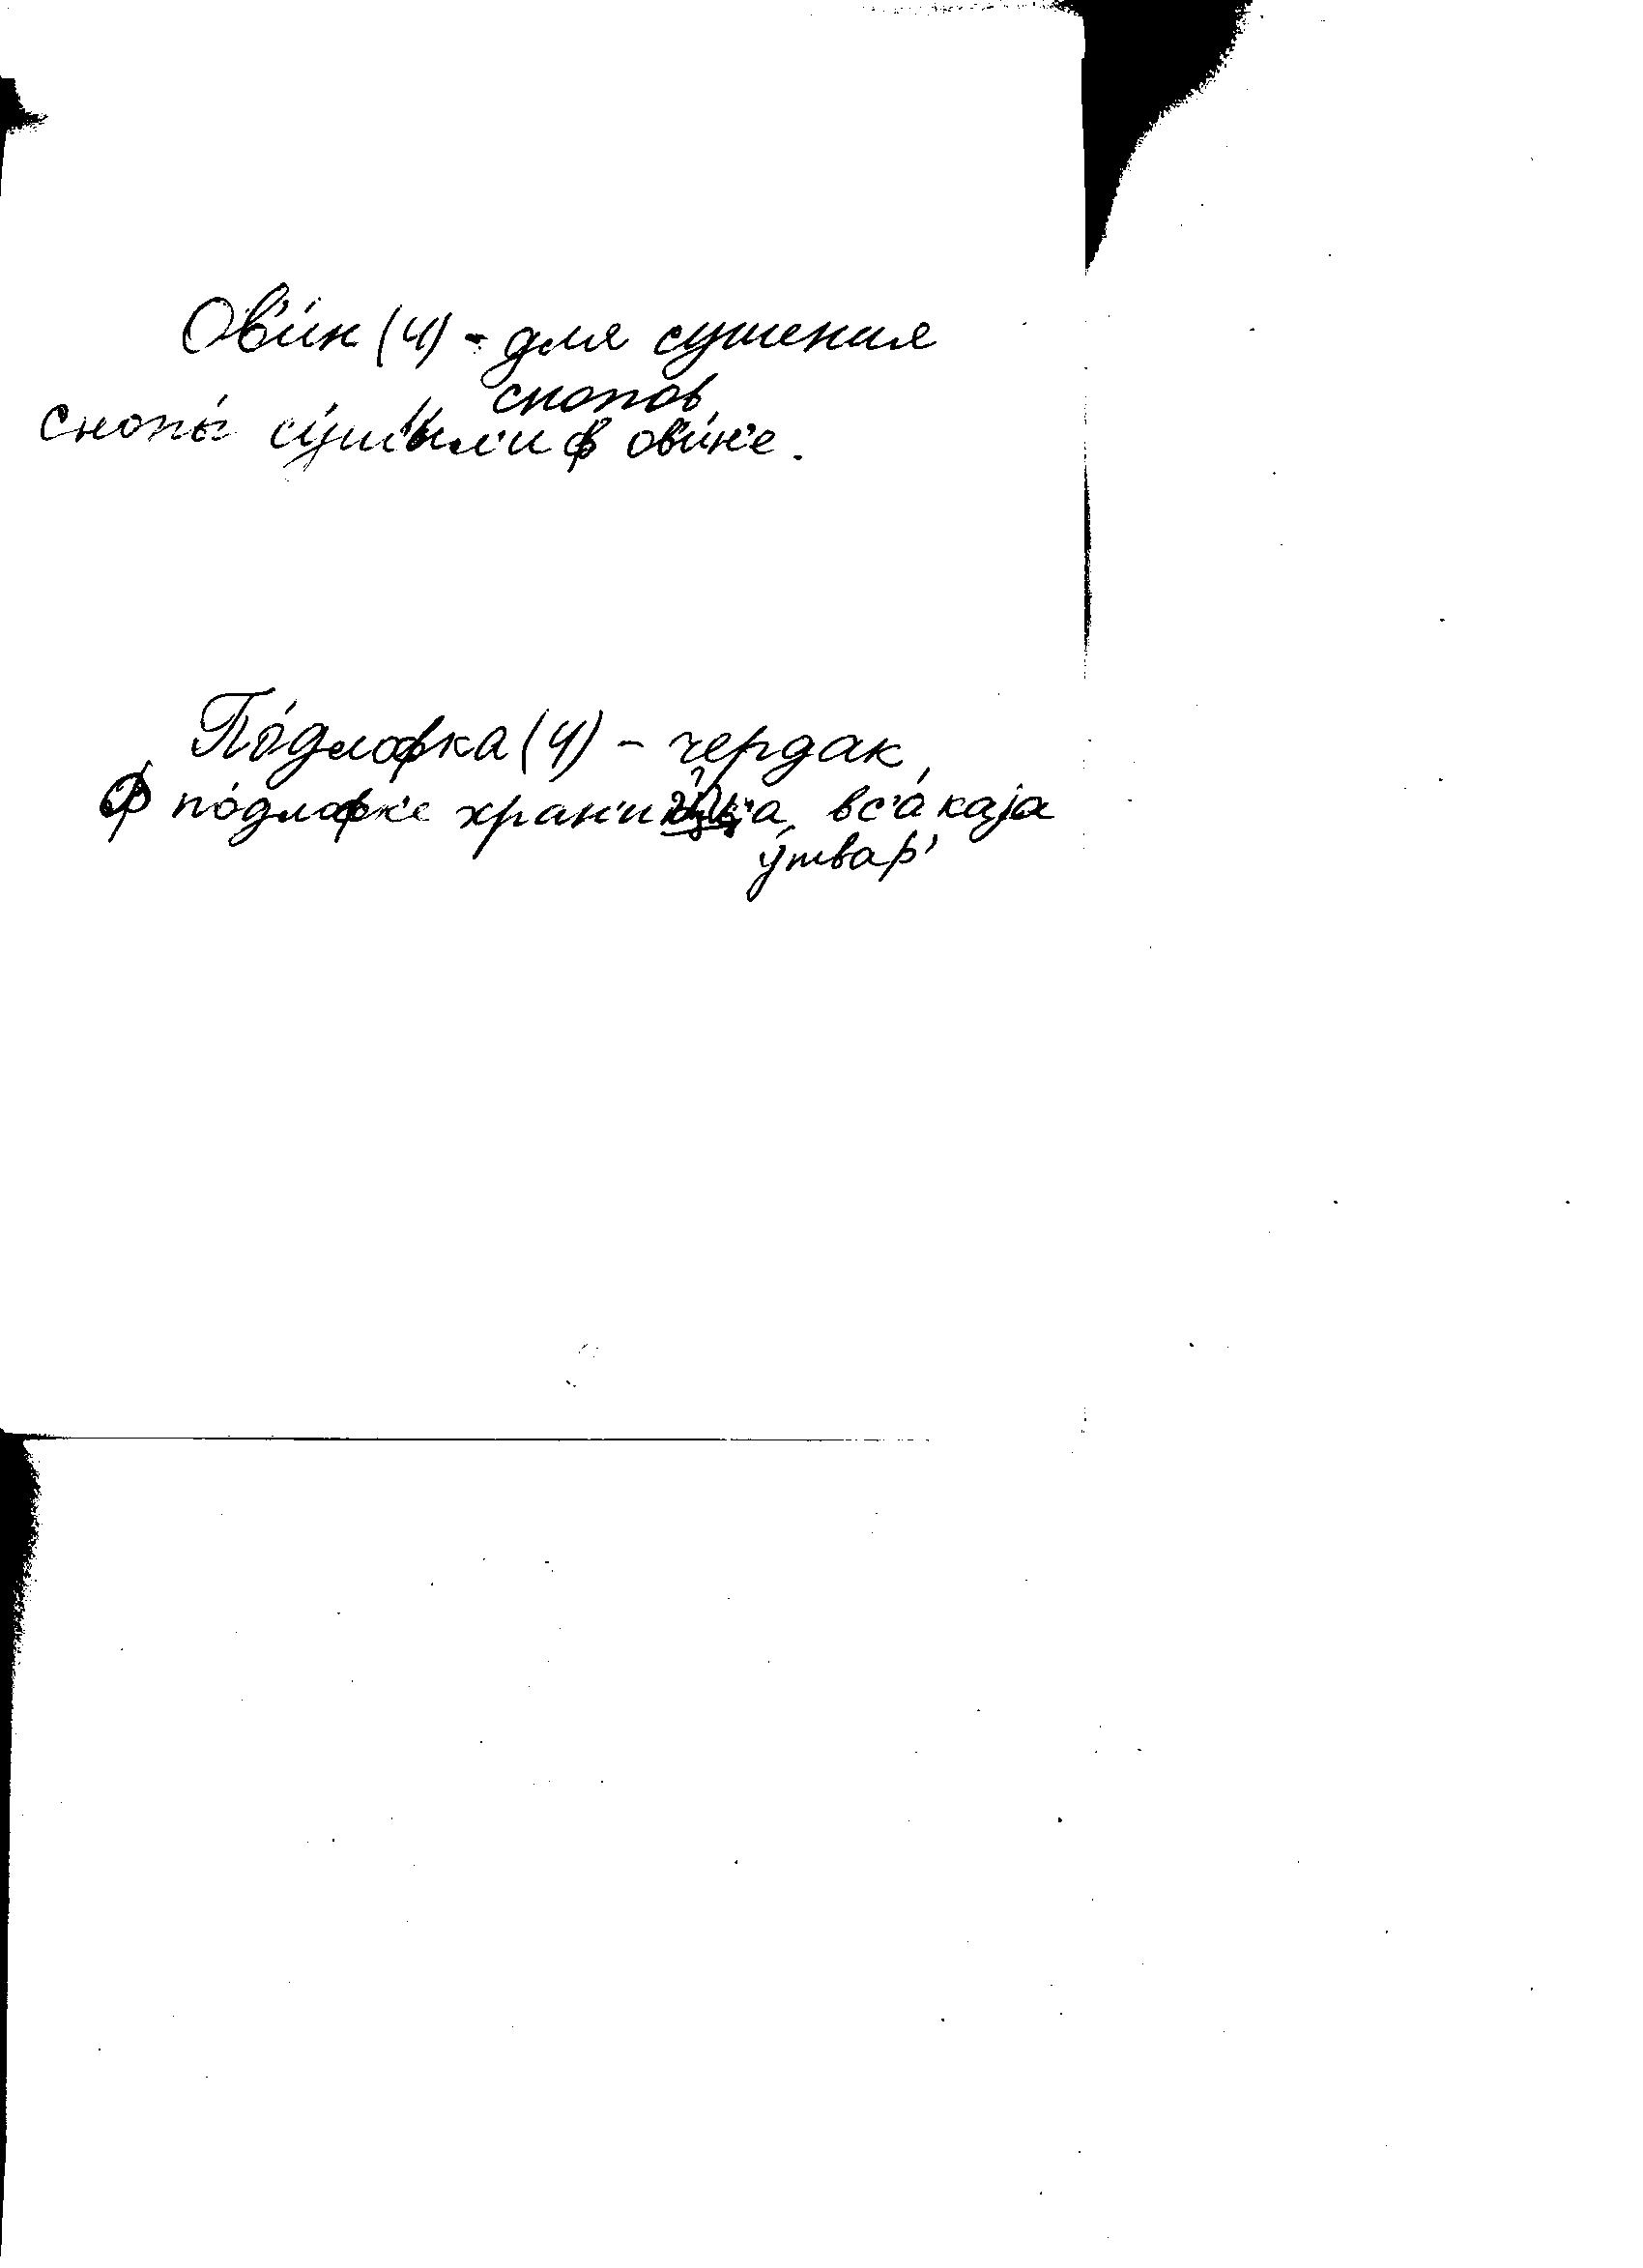 Ов'и́н (4) - для сушения
снопов
снопы́ су́шыл'и ф ов'и́н'е.
По́длофка (4) - чердак
Ф по́длофк'е вс'а́каjа
у́твар'